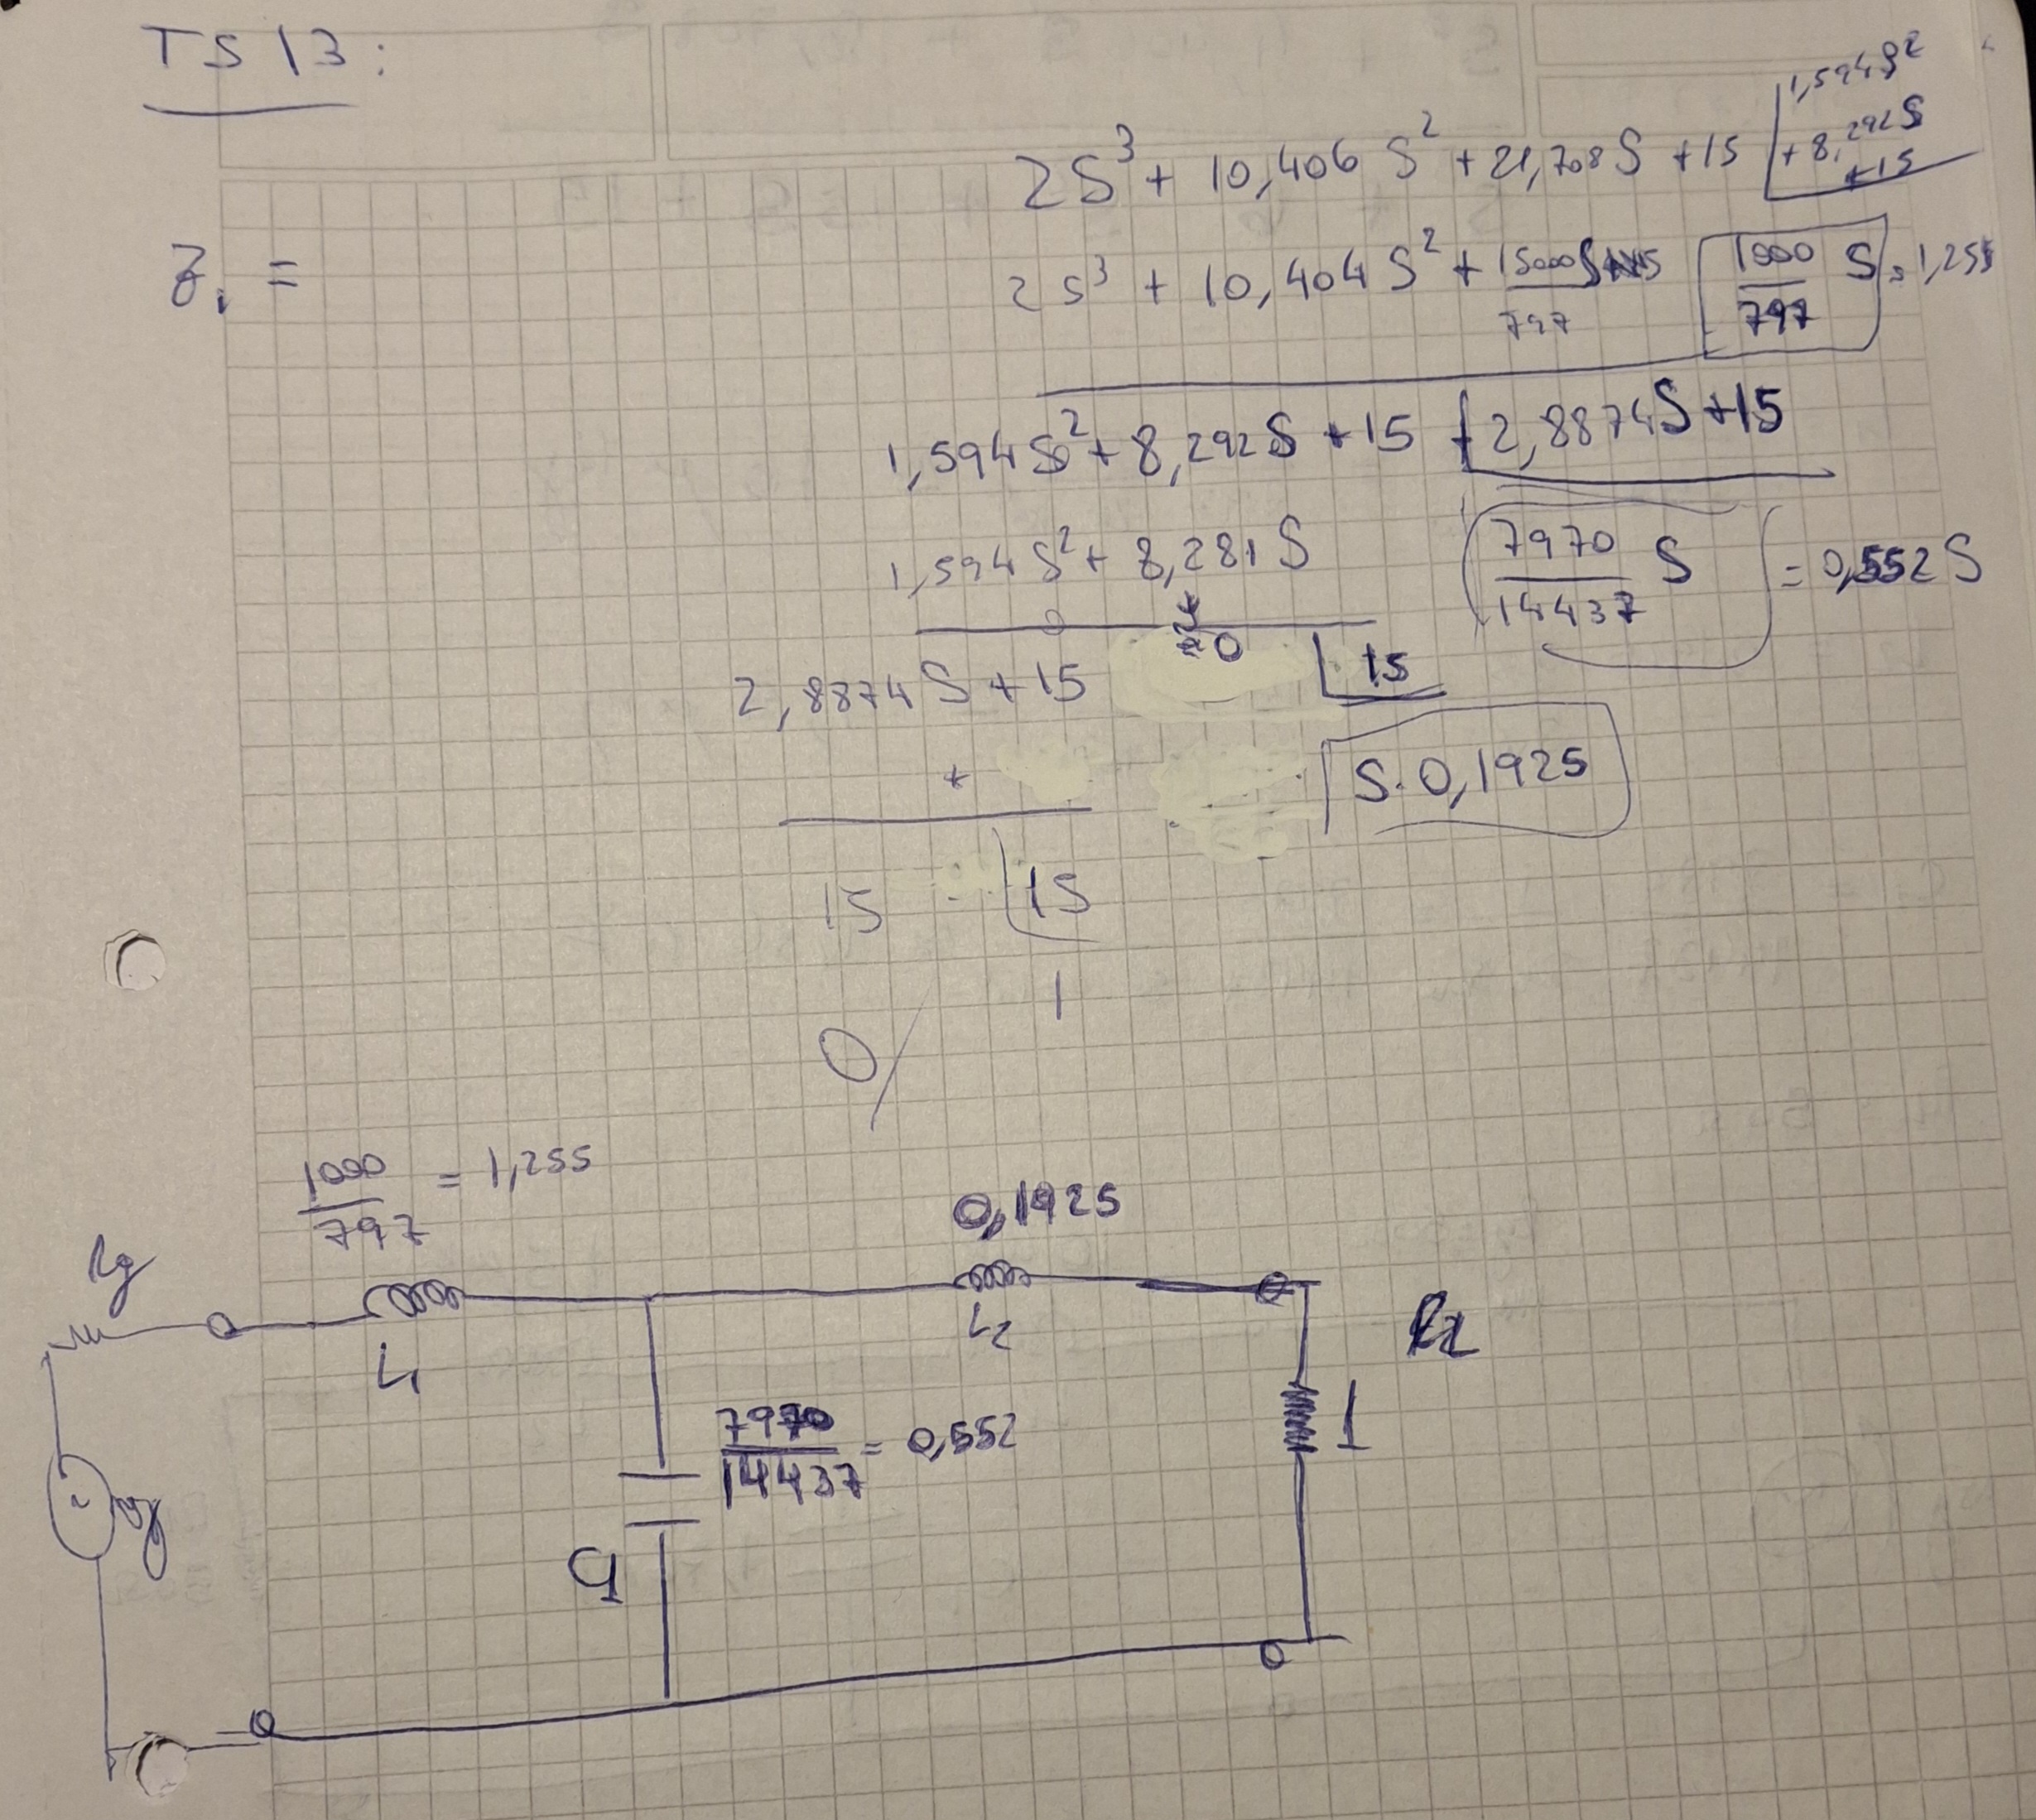 TS 13:
2S³ + 10,406 S² + 21,708 S + 15 | 1,594S² + 8,292S + 15
Z₁ =
2S³ + 10,404 S² + 15000/797 S
1000/797 S = 1,255
1,594S² + 8,292S + 15 | 2,8874S + 15
1,594S² + 8,281S
7970/14437 S = 0,552S
0 ≈0
2,8874S + 15 | 15
S·0,1925
15 | 15
1
0
1000/797 = 1,255
0,1925
Rg
L1
L2
1
7970/14437 = 0,552
C1